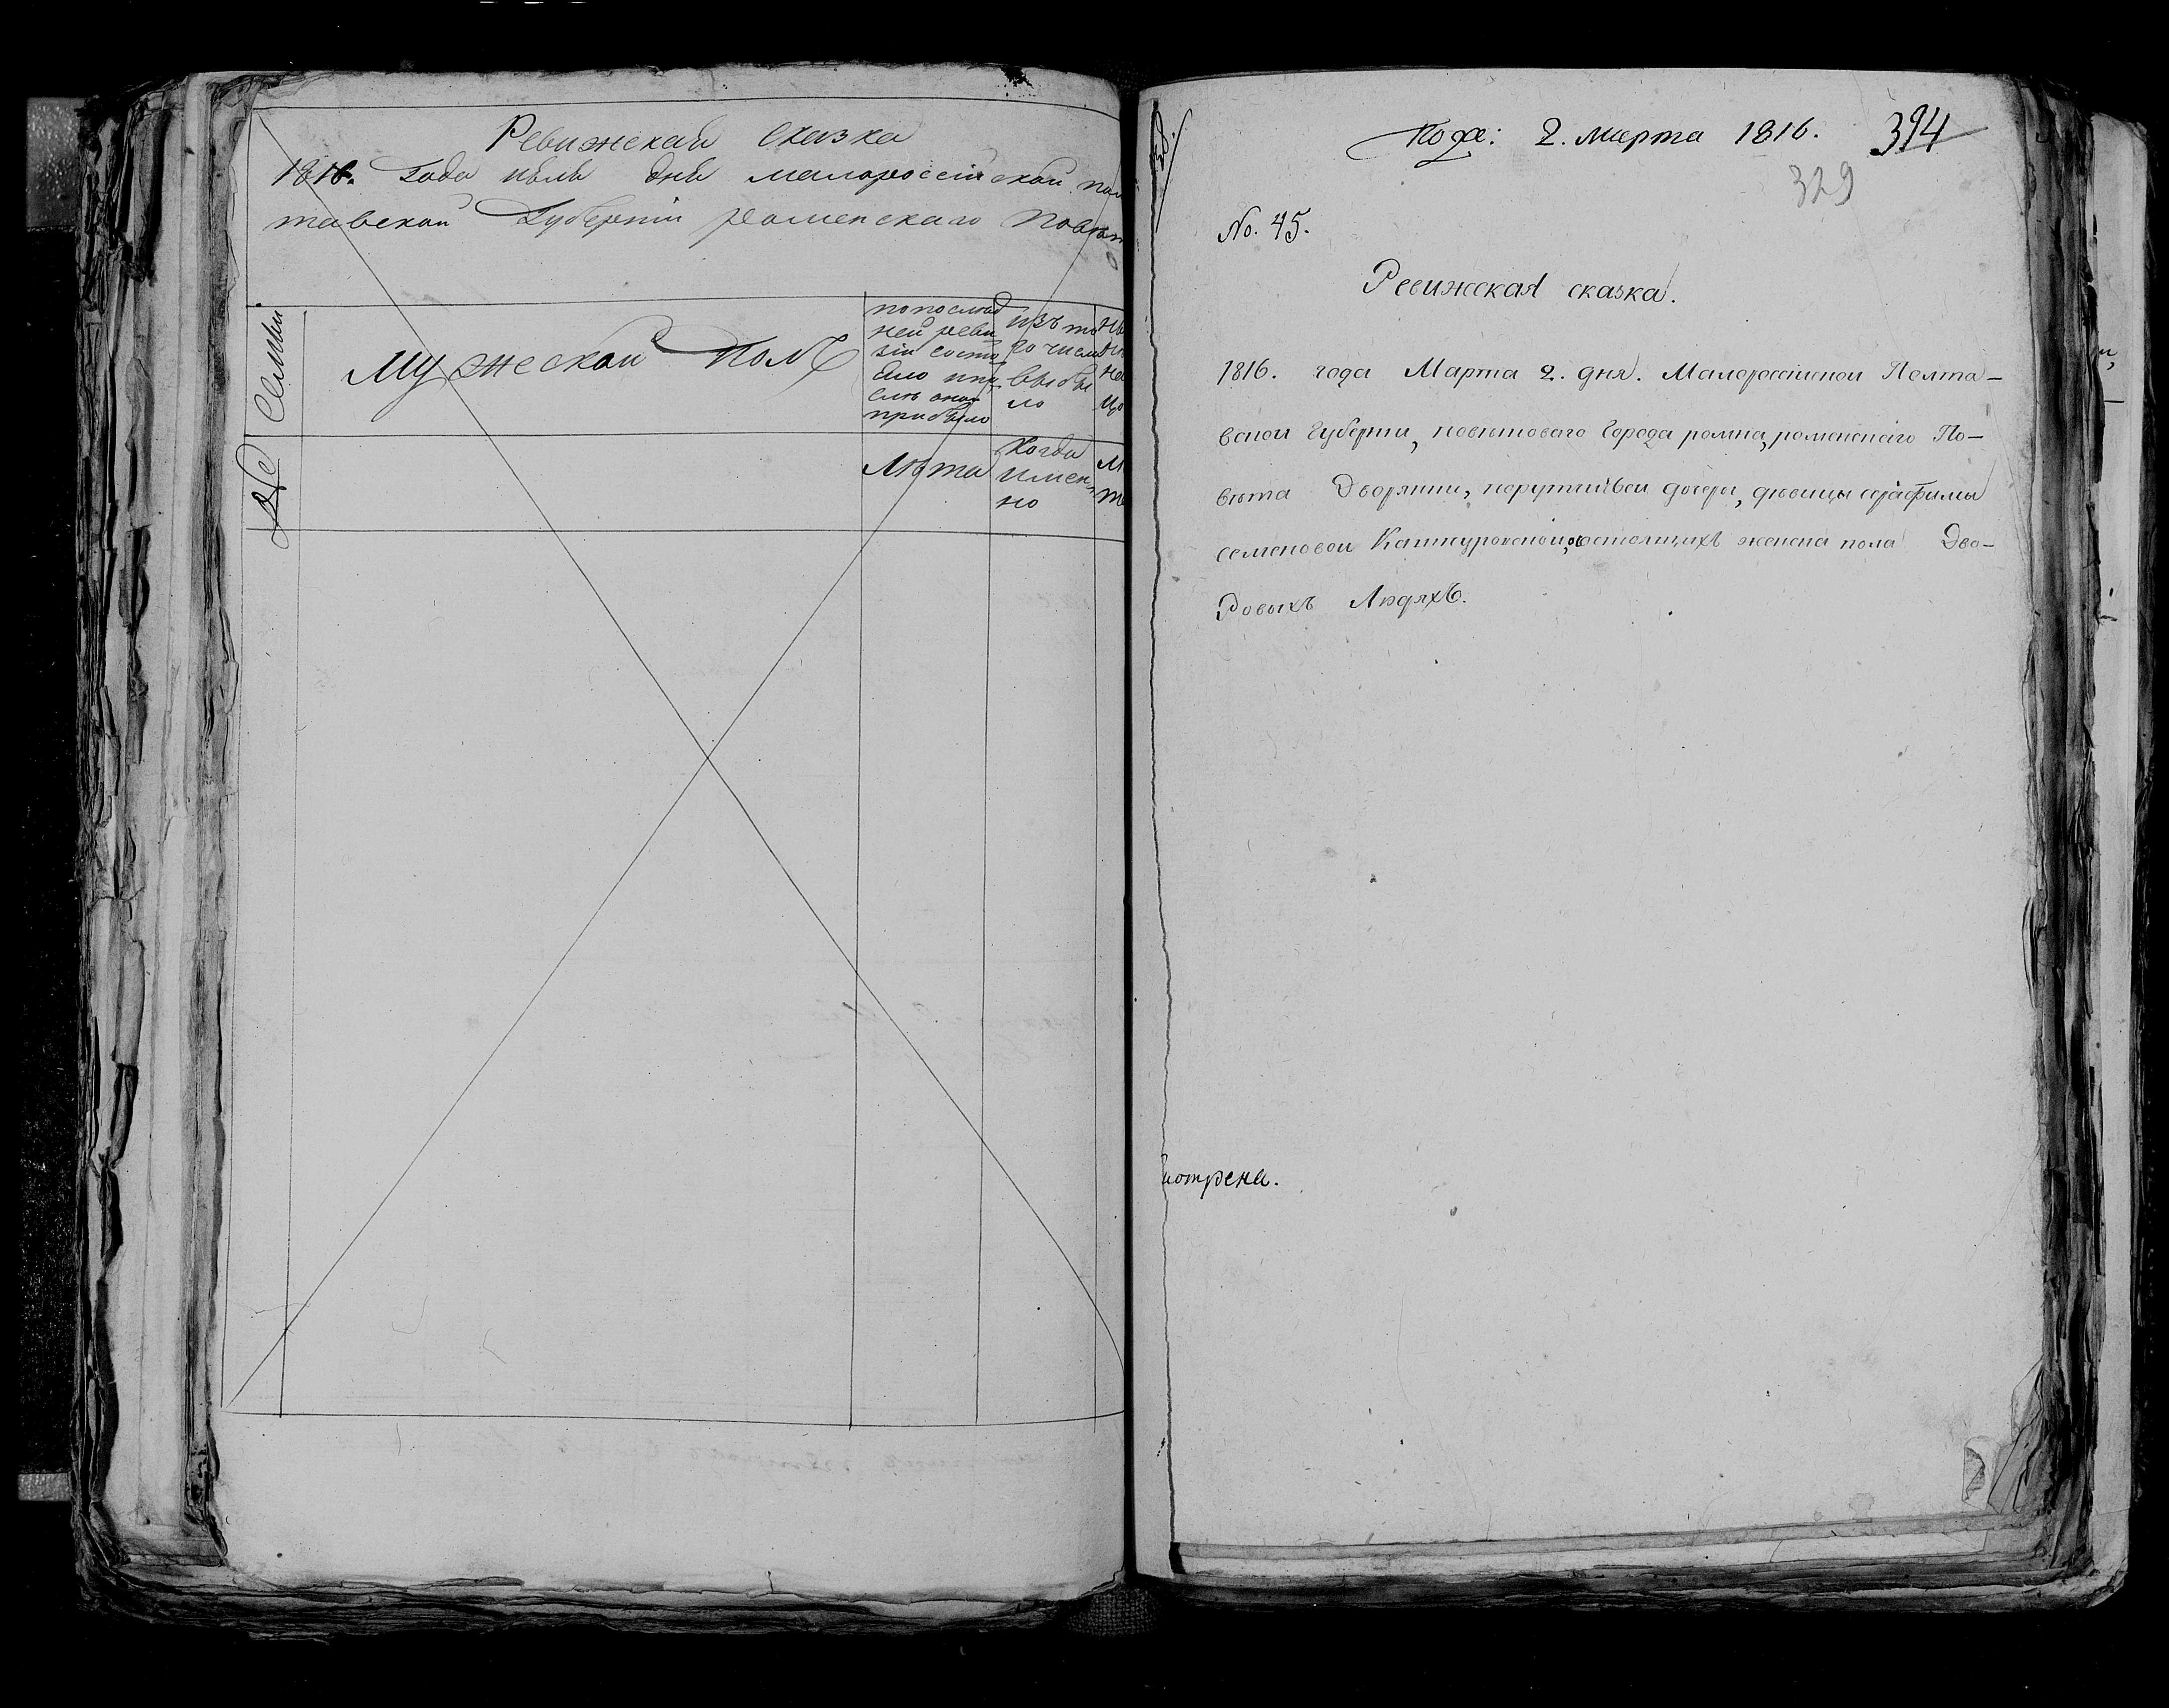 Ревижскаѧ сказка
1816. Года июля дня малороссійской пол
тавской Губерніи роменскаго повѣт
№ Семьи
Мужеской Полъ
по послѣд
ней реви
зіи состо
яло и по
слѣ оной
прибыло
изъ то
го числа
выбы
ло
Лѣта
Когда
имен
но
Пода: 2. марта 1816. 394
329
No. 45.
Ревижская сказка.
1816. года Марта 2. дня. Малороссійской Полта-
вской Губерніи, повѣтоваго Города ромна, роменскаго По-
вѣта Дворянки, порутчицкой дочери, дѣвицы серафимы
семеновой состоящихъ женска пола Дво-
ровыхъ Людяхъ.
мотрена.